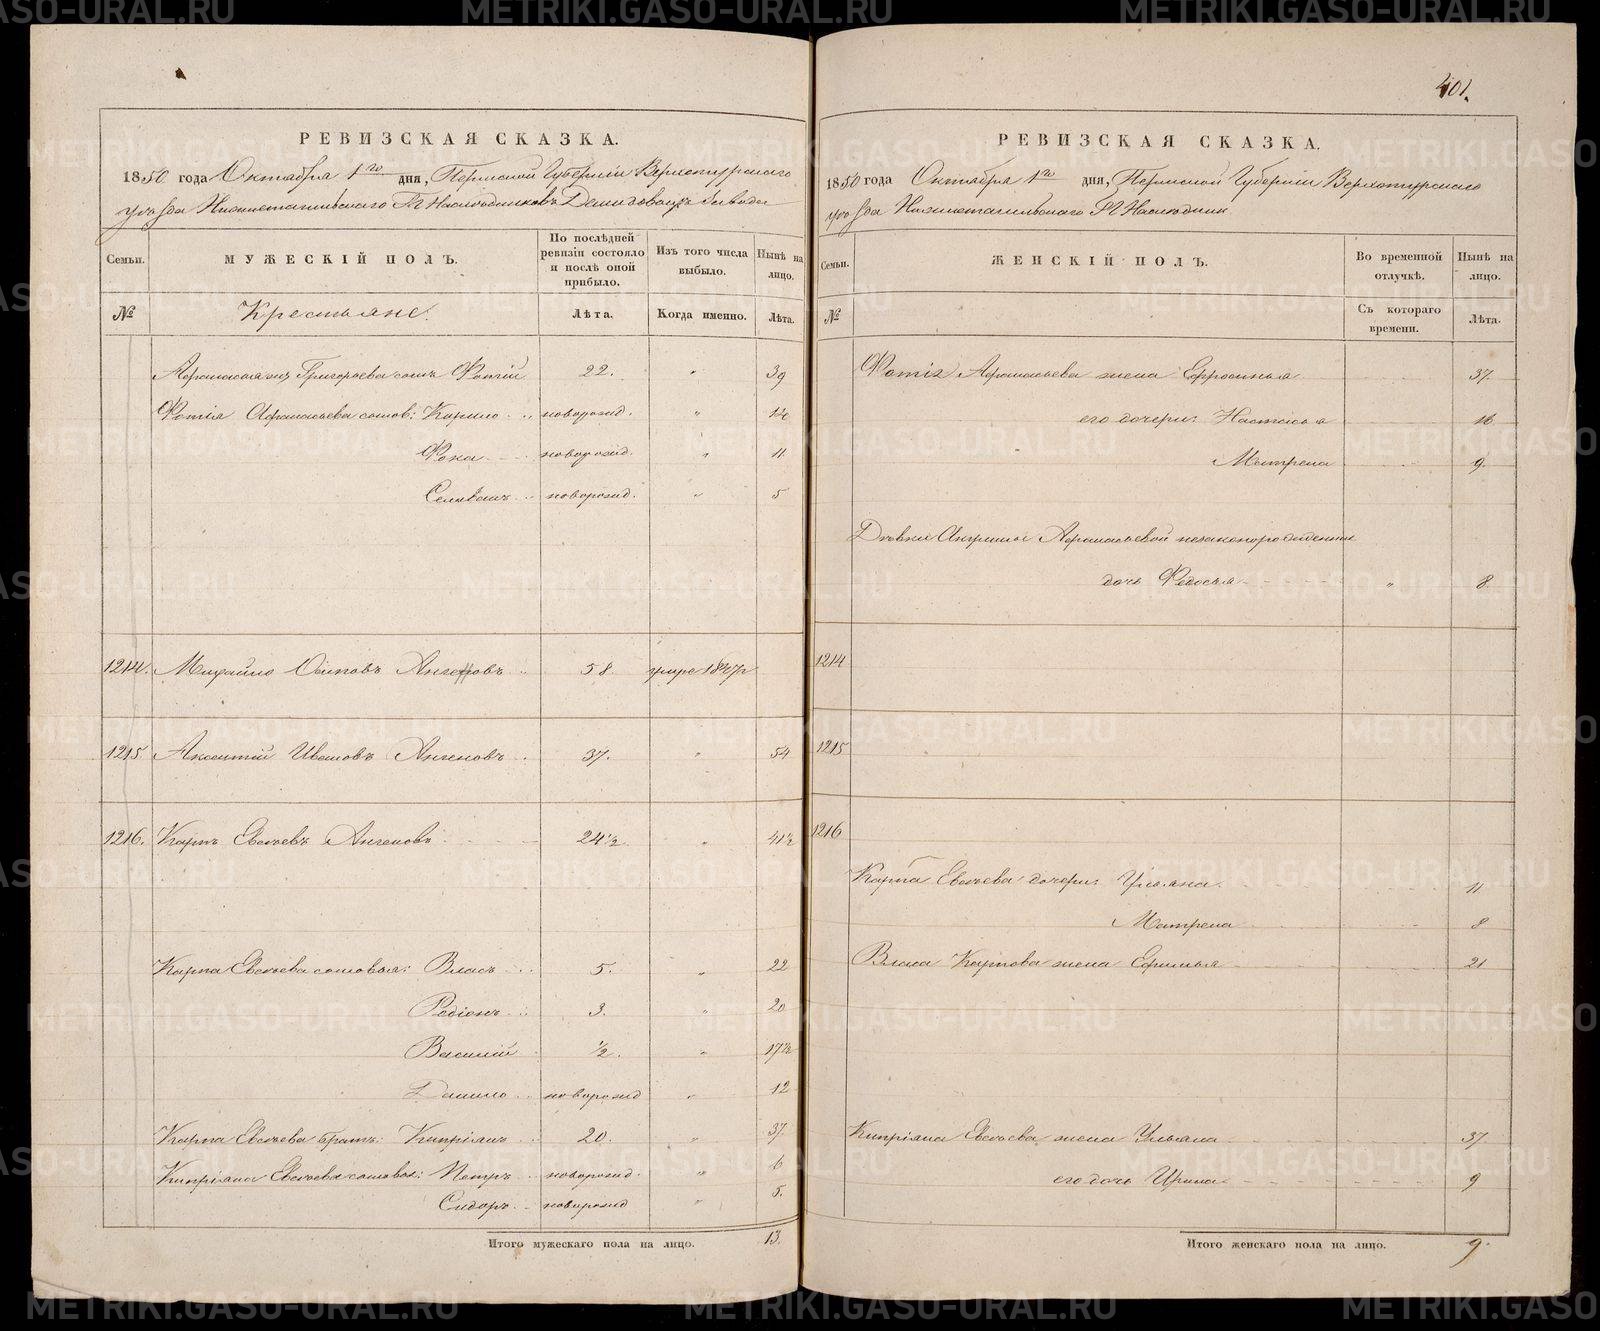 401.
РЕВИЗСКАЯ СКАЗКА.
1850 года Октября 1го дня, Пермской Губернiи Верхотурскаго
уѣзда Нижнетагильскаго Гг Наслѣдниковъ Демидовыхъ завода
Семьи. МУЖЕСКIЙ ПОЛЪ. По послѣдней ревизiи состояло и послѣ оной прибыло. Изъ того числа выбыло. Нынѣ на лицо.
№ Крестьяне. Лѣта. Когда именно. Лѣта.
Афанасья Григорьева сынъ Фотiй 22. " 39
Фотiя Афанасьева сынов: Кирило новорожд. " 14
Фока новорожд. " 11
Селиванъ новорожд. " 5
1214. Михайло Осиповъ 58 умре 1847
1215 Аксентiй Ивановъ Ангеновъ 37. " 54
1216. Карпъ Евсѣевъ Ангеновъ 24½ " 41½
Карпа Евсѣева сыновья: Власъ 5. " 22
Родiонъ 3. " 20
Василiй ½. " 17½
Данило новорожд " 12
Карпа Евсѣева братъ: Кипрiянъ 20. " 37
Кипрiяна Евсѣева сыновья: Петръ новорожд. " 6
Сидоръ новорожд " 5.
Итого мужескаго пола на лицо. 13.
РЕВИЗСКАЯ СКАЗКА.
1850 года Октября 1го дня, Пермской Губернiи Верхотурскаго
уѣзда Нижнетагильскаго Гг Наслѣдник
Семьи. ЖЕНСКIЙ ПОЛЪ. Во временной отлучкѣ. Нынѣ на лицо.
№ Съ котораго времени. Лѣта.
Фотiя Афанасьева жена Ефросинья 37.
его дочери: Настасья 16
Матрена 9.
Дѣвки Акулины Афанасьевой незаконорожденная
дочь Федосья " 8
1214
1215
1216
Карпа Евсѣева дочери: Ульяна 11
Матрена 8
Власа Карпова жена Ефимья 21
Кипрiана Евсѣева жена Ульяна 37
его дочь Ирина 9
Итого женскаго пола на лицо. 9.
METRIKI.GASO-URAL.RU